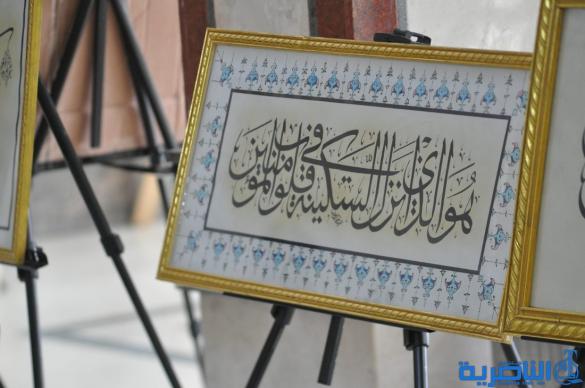 هُوَ الَّذِي أَنزَلَ السَّكِينَةَ فِي قُلُوبِ الْمُؤْمِنِينَ
الناصرية